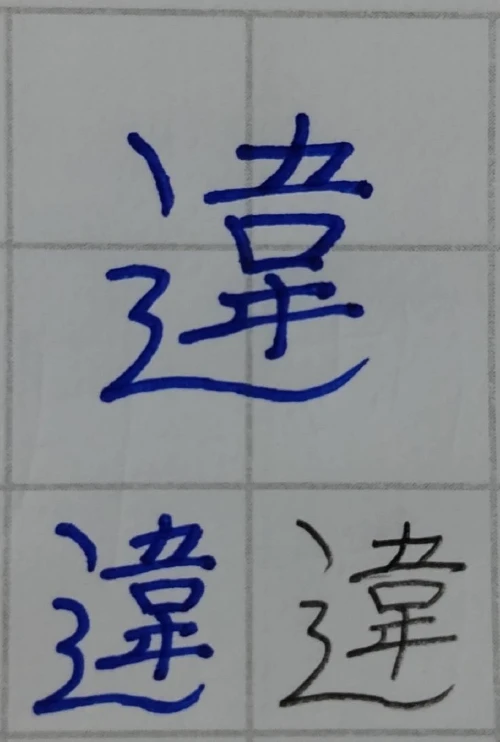 違
違 違